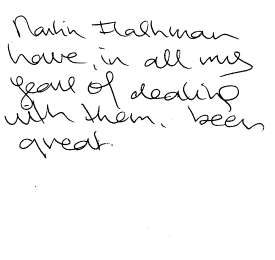 Martin Flashman
have, in all my
years of dealing
with them, been
great.